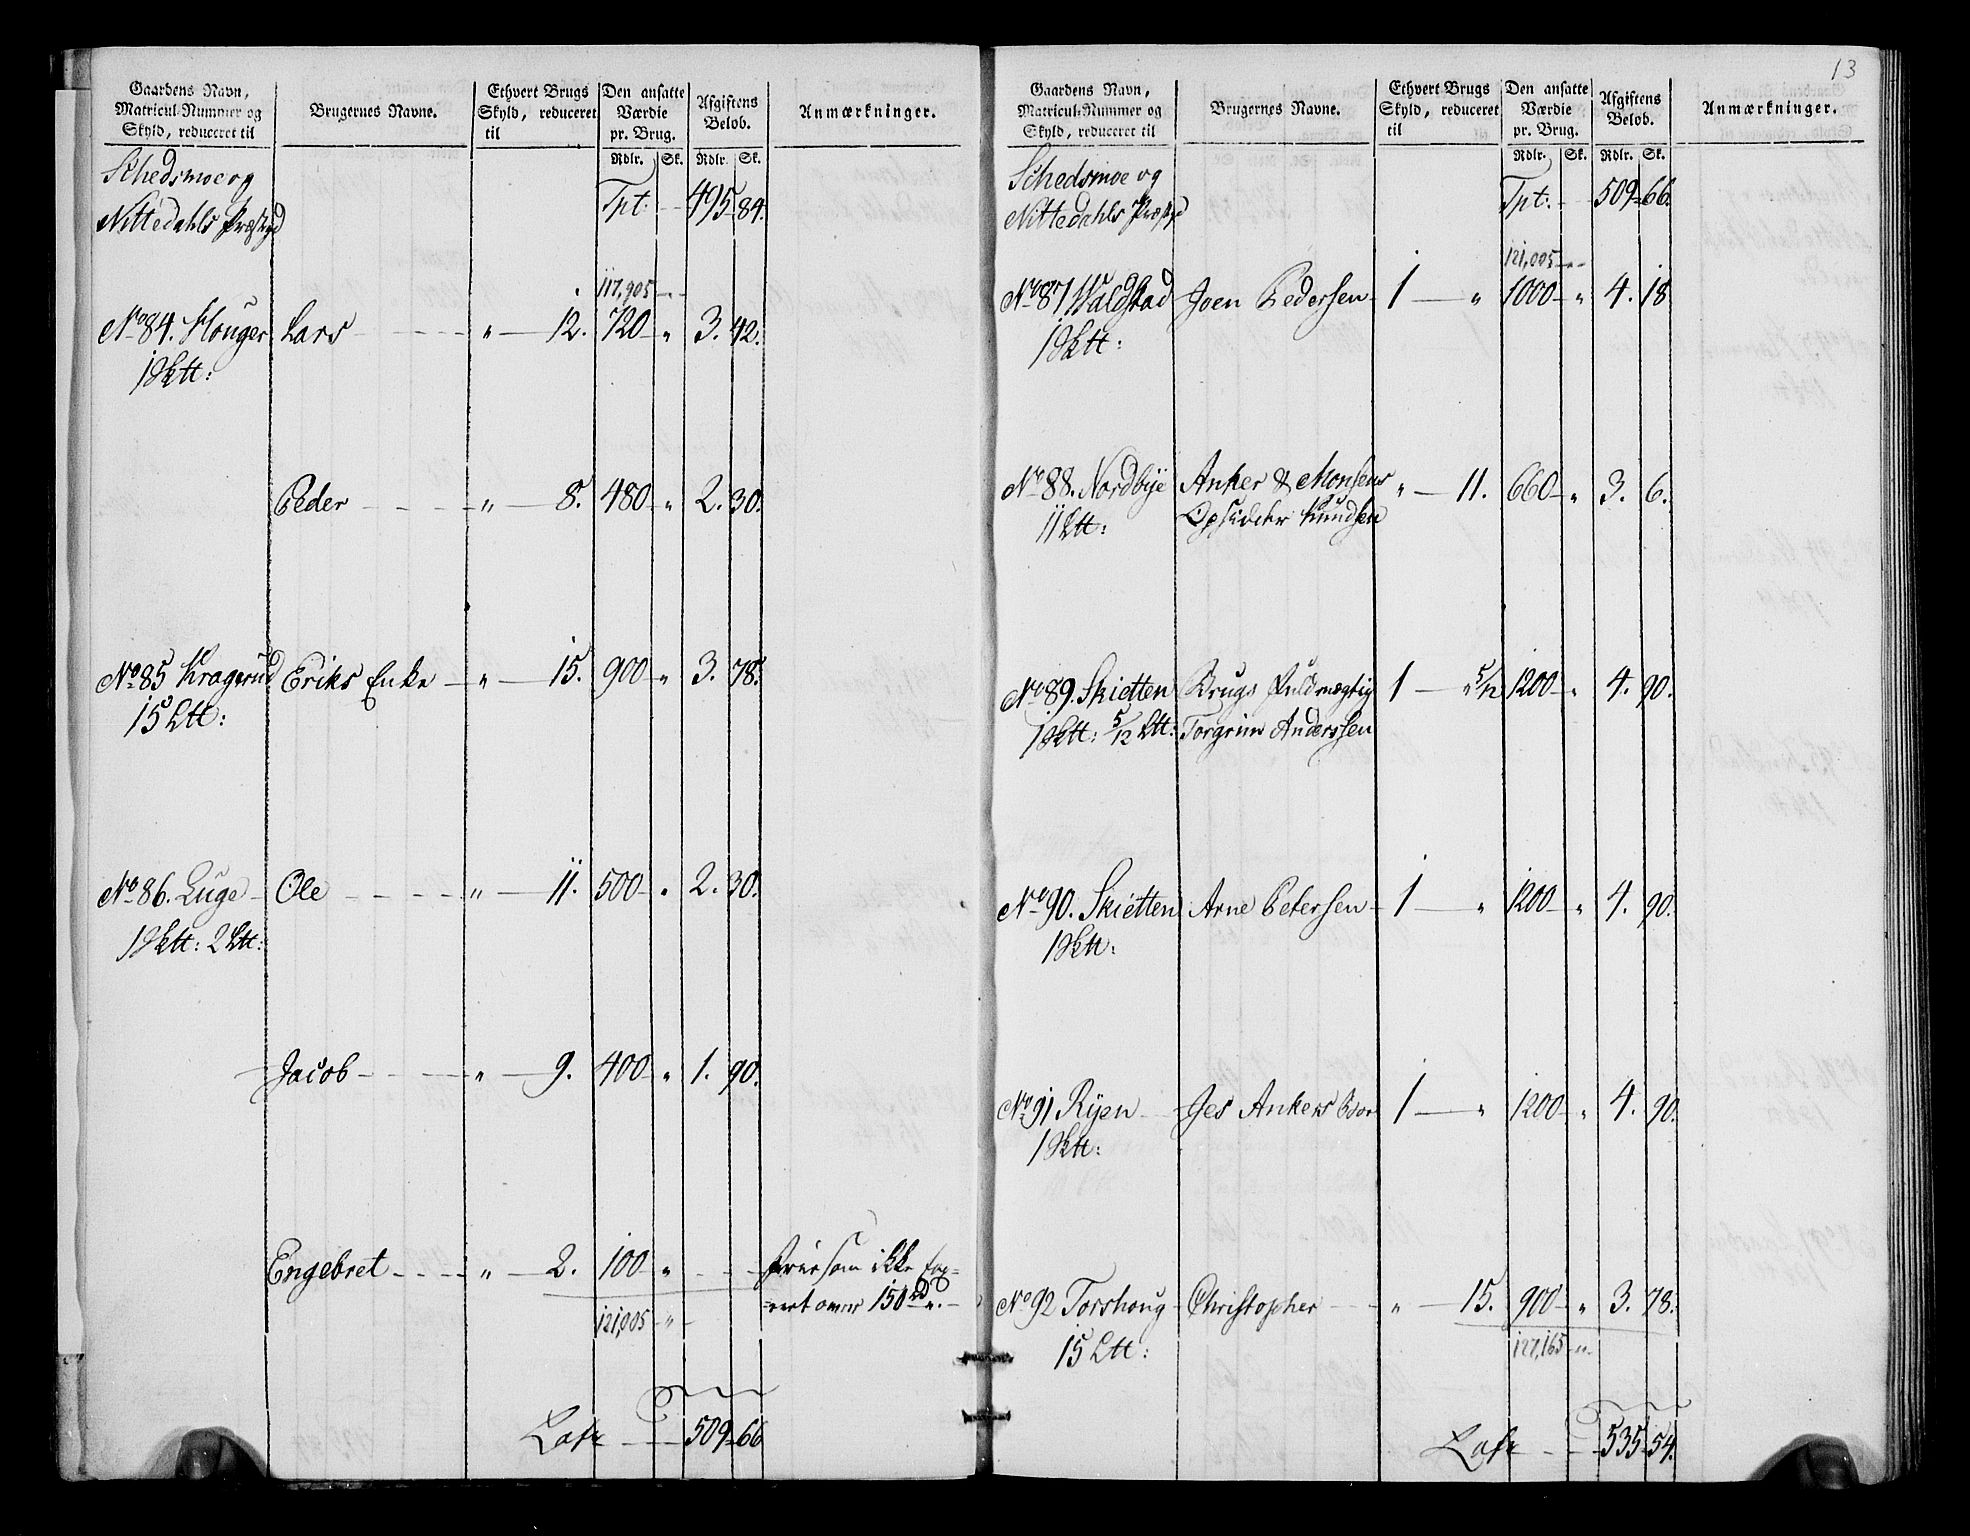 Gaardens Navn, Matricul-Nummer og Skyld, reduceret til | Brugernes Navne. | Ethvert Brugs Skyld, reduceret til | Den ansatte Værdie pr. Brug. | Afgiftens Beløb. | Anmærkninger.
Rdlr. Sk. Rdlr. Sk.
Schedsmoe og
Nittedahls Præstgd Tpt: 495 84.
117,905
No 84. Houger Lars „ 12. 720 „ 3. 42.
1 Sktt:
Peder „ 8. 480 „ 2. 30.
No 85 Kragerud Eriks Enke „ 15. 900 „ 3. 78.
15 Ltt:
No 86. Luge Ole „ 11. 500 „ 2. 30.
1 Sktt: 2 Ltt:
Jacob „ 9. 400 „ 1. 90.
Engebret „ 2. 100 „ som ikke
over 150 rd
121,005 „
Late 509 66
13
Gaardens Navn, Matricul-Nummer og Skyld, reduceret til | Brugernes Navne. | Ethvert Brugs Skyld, reduceret til | Den ansatte Værdie pr. Brug. | Afgiftens Beløb. | Anmærkninger.
Rdlr. Sk. Rdlr. Sk.
Schedsmoe og
Nittedahls Præstgd Tpt: 509 66.
121,005
No 87 Waldstad Joen Pedersen 1 „ 1000 „ 4. 18
1 Sktt:
No 88. Nordbye Anker & Monsens „ 11. 660 „ 3. 6.
11 Ltt: Opsidder Knudsen
No 89. Skietten Brugs Fuldmægtig 1 „ 5/12 1200 „ 4. 90.
1 Sktt: 5/12 Ltt: Torgrim Anderssen
No 90. Skietten Arne Petersen 1 „ 1200 „ 4. 90.
1 Sktt:
No 91 Ryen Jes Ankers 1 „ 1200 „ 4. 90.
1 Sktt:
No 92 Torshoug Christopher „ 15. 900 „ 3. 78.
15 Ltt: 127,165 „
Late 535 54.